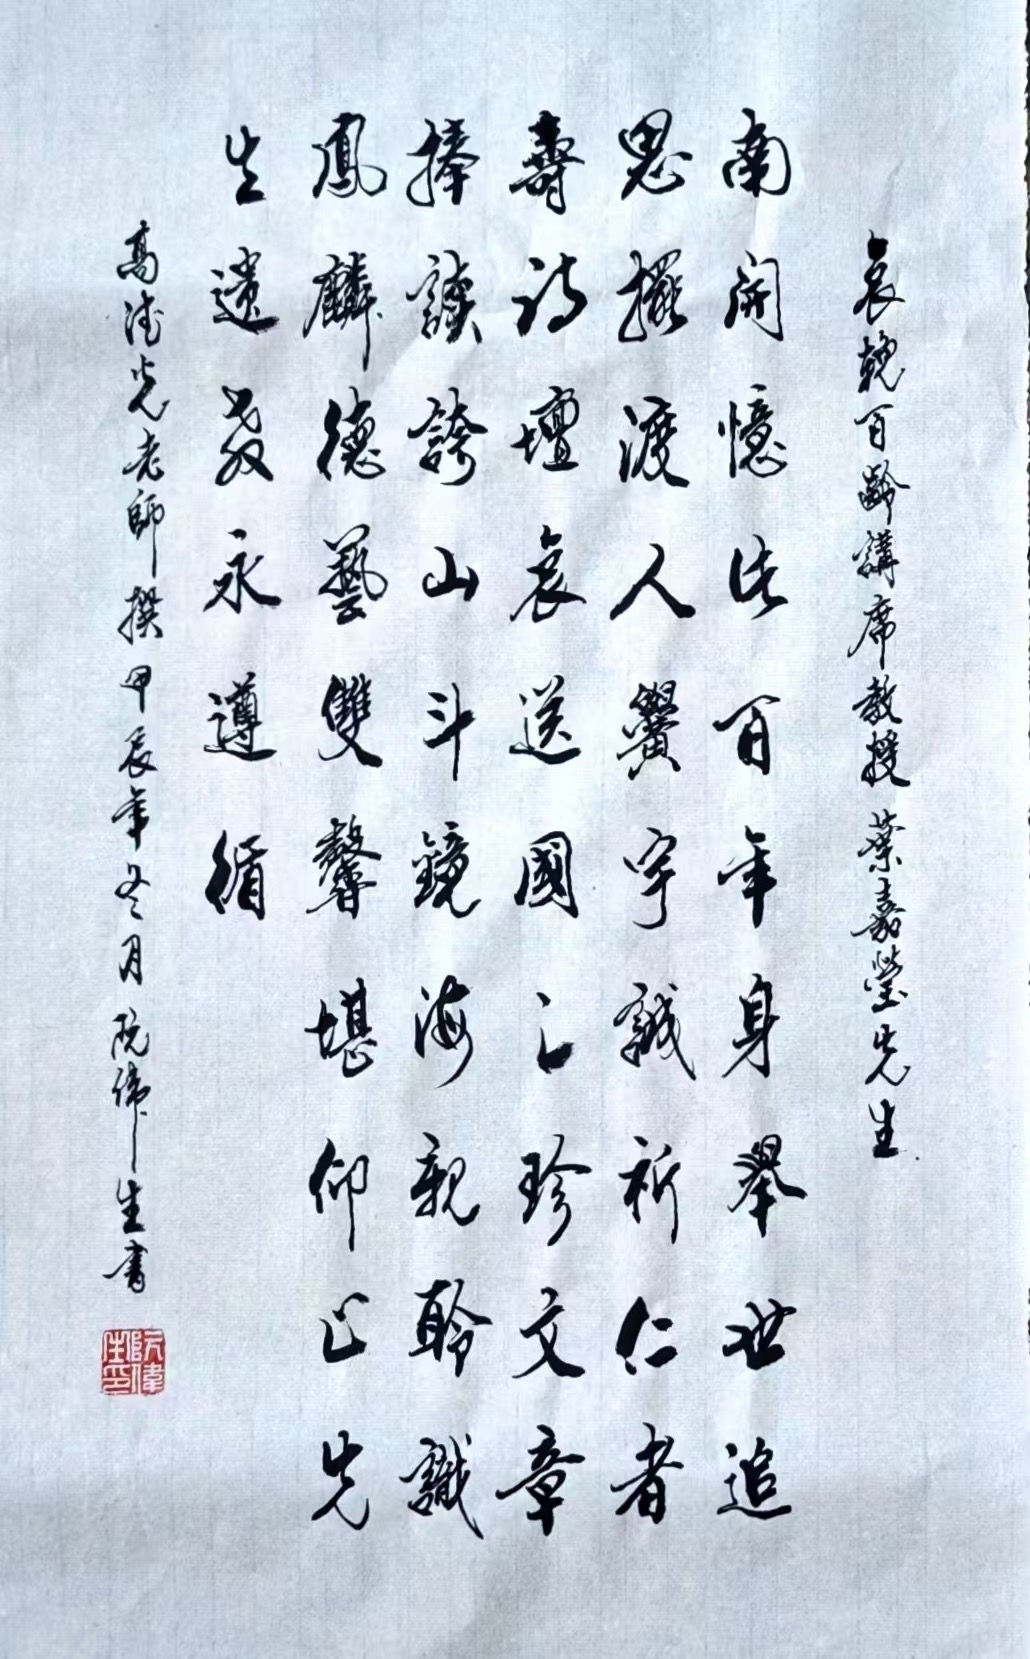 哀輓百齡講席教授葉嘉瑩先生
南開憶昔百年身舉世追
思擺渡人黌宇誠祈仁者
壽詩壇哀送國之珍文章
捧讀誇山斗鏡海親聆識
鳳麟德藝雙馨堪仰止先
生遺教永遵循
高德光老師撰甲辰年冬月阮偉生書
阮偉生印